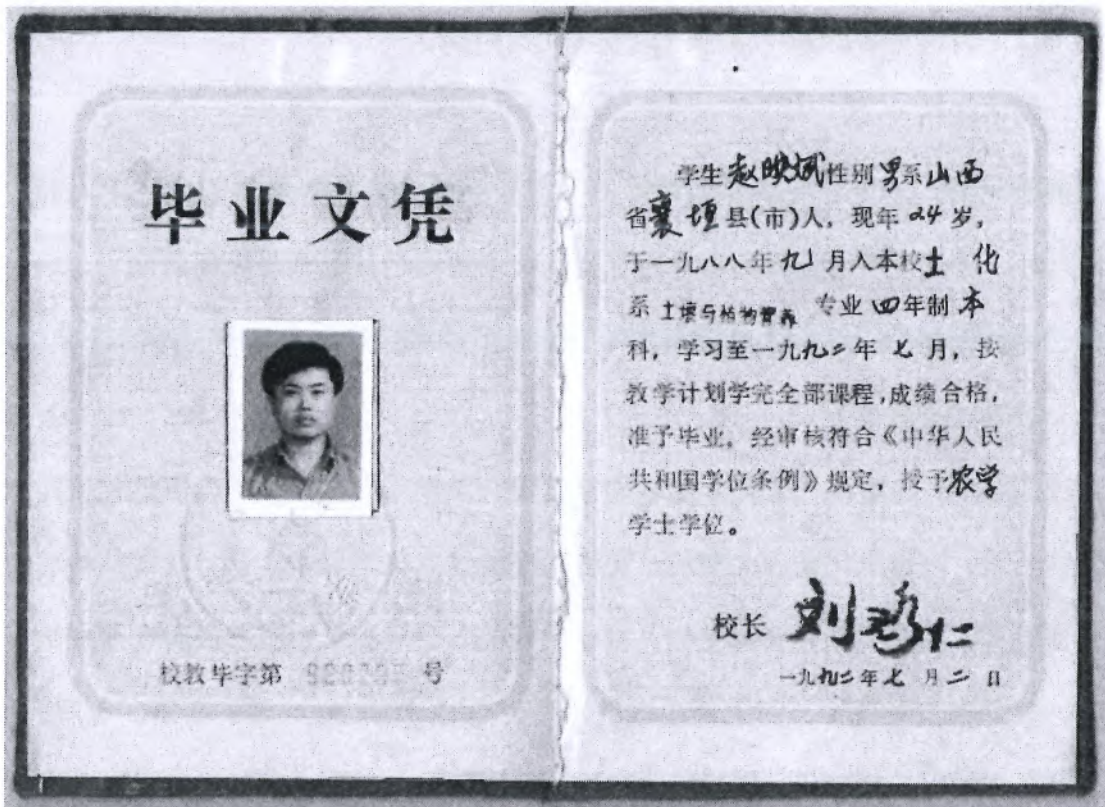 毕业文凭
校教毕字第 号
学生赵映斌性别男系山西
省襄垣县(市)人，现年24岁，
于一九八八年九月入本校土化
系土壤与植物营养专业四年制本
科，学习至一九九二年七月，按
教学计划学完全部课程，成绩合格，
准予毕业。经审核符合《中华人民
共和国学位条例》规定，授予农学
学士学位。
校长 刘
一九九二年七月二日